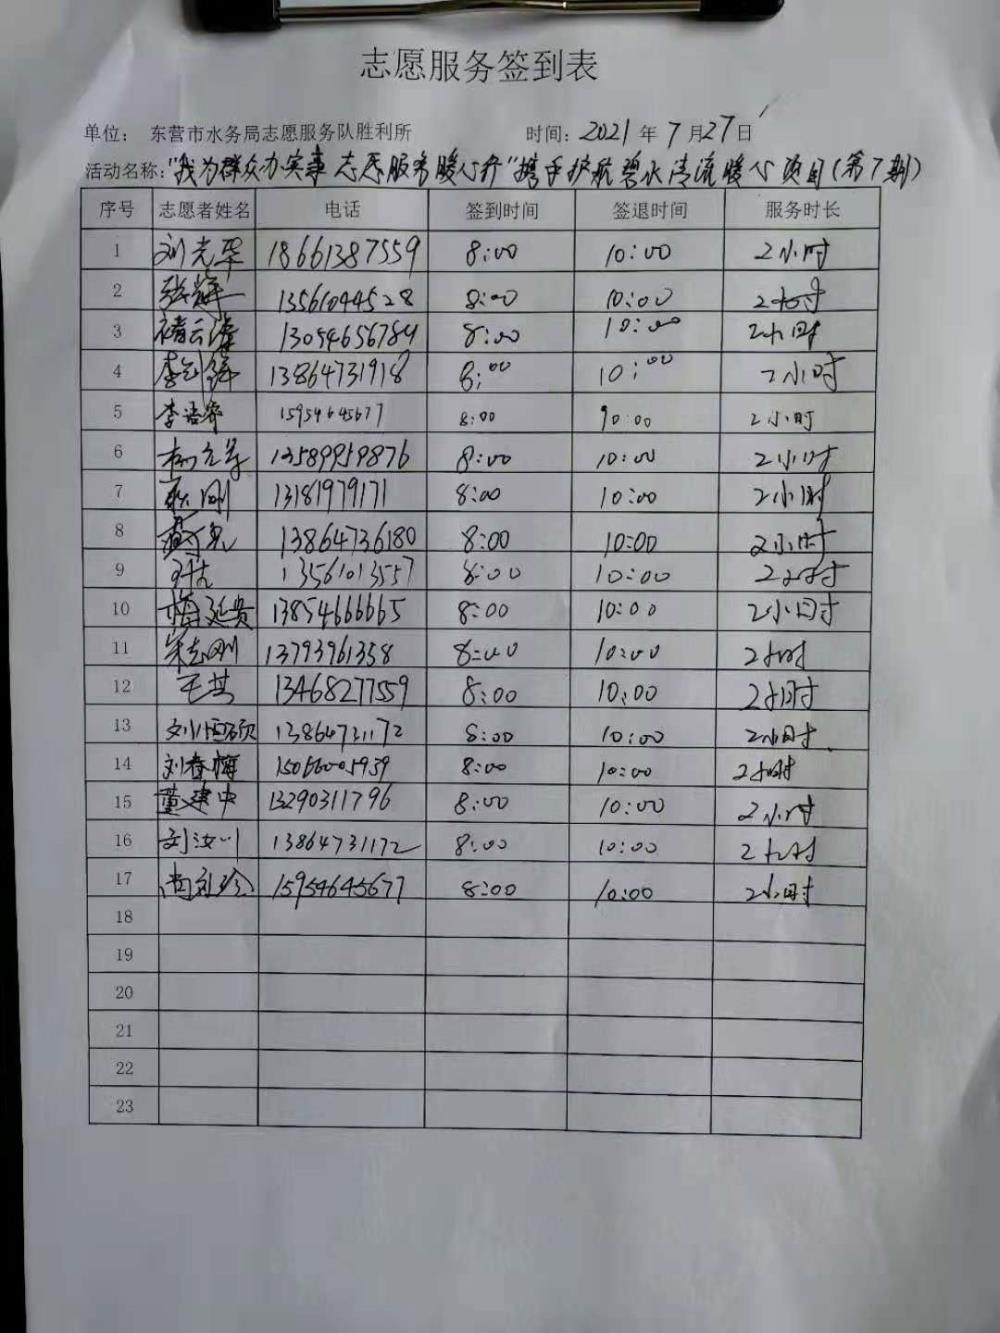 志愿服务签到表
单位： 东营市水务局志愿服务队胜利所 时间：2021年7月27日
活动名称："我为群众办实事 志愿服务暖心行"携手护航碧水清流暖心项目(第7期)
序号 志愿者姓名 电话 签到时间 签退时间 服务时长
1 刘光军 18661387559 8:00 10:00 2小时
2 张辉 13561044528 8:00 10:00 2小时
3 褚云海 13054656784 8:00 10:00 2小时
4 13864731918 8:00 10:00 2小时
5 李浩睿 15954645677 8:00 10:00 2小时
6 13589959876 8:00 10:00 2小时
7 13181979171 8:00 10:00 2小时
8 13864736180 8:00 10:00 2小时
9 13561013557 8:00 10:00 2小时
10 梅延贵 13854666665 8:00 10:00 2小时
11 宋志刚 13793961358 8:00 10:00 2小时
12 王其 13468277559 8:00 10:00 2小时
13 刘恒硕 13864731172 8:00 10:00 2小时
14 刘春梅 15066005939 8:00 10:00 2小时
15 董建中 13290311796 8:00 10:00 2小时
16 刘汝川 13864731172 8:00 10:00 2小时
17 尚爱珍 15954645677 8:00 10:00 2小时
18
19
20
21
22
23